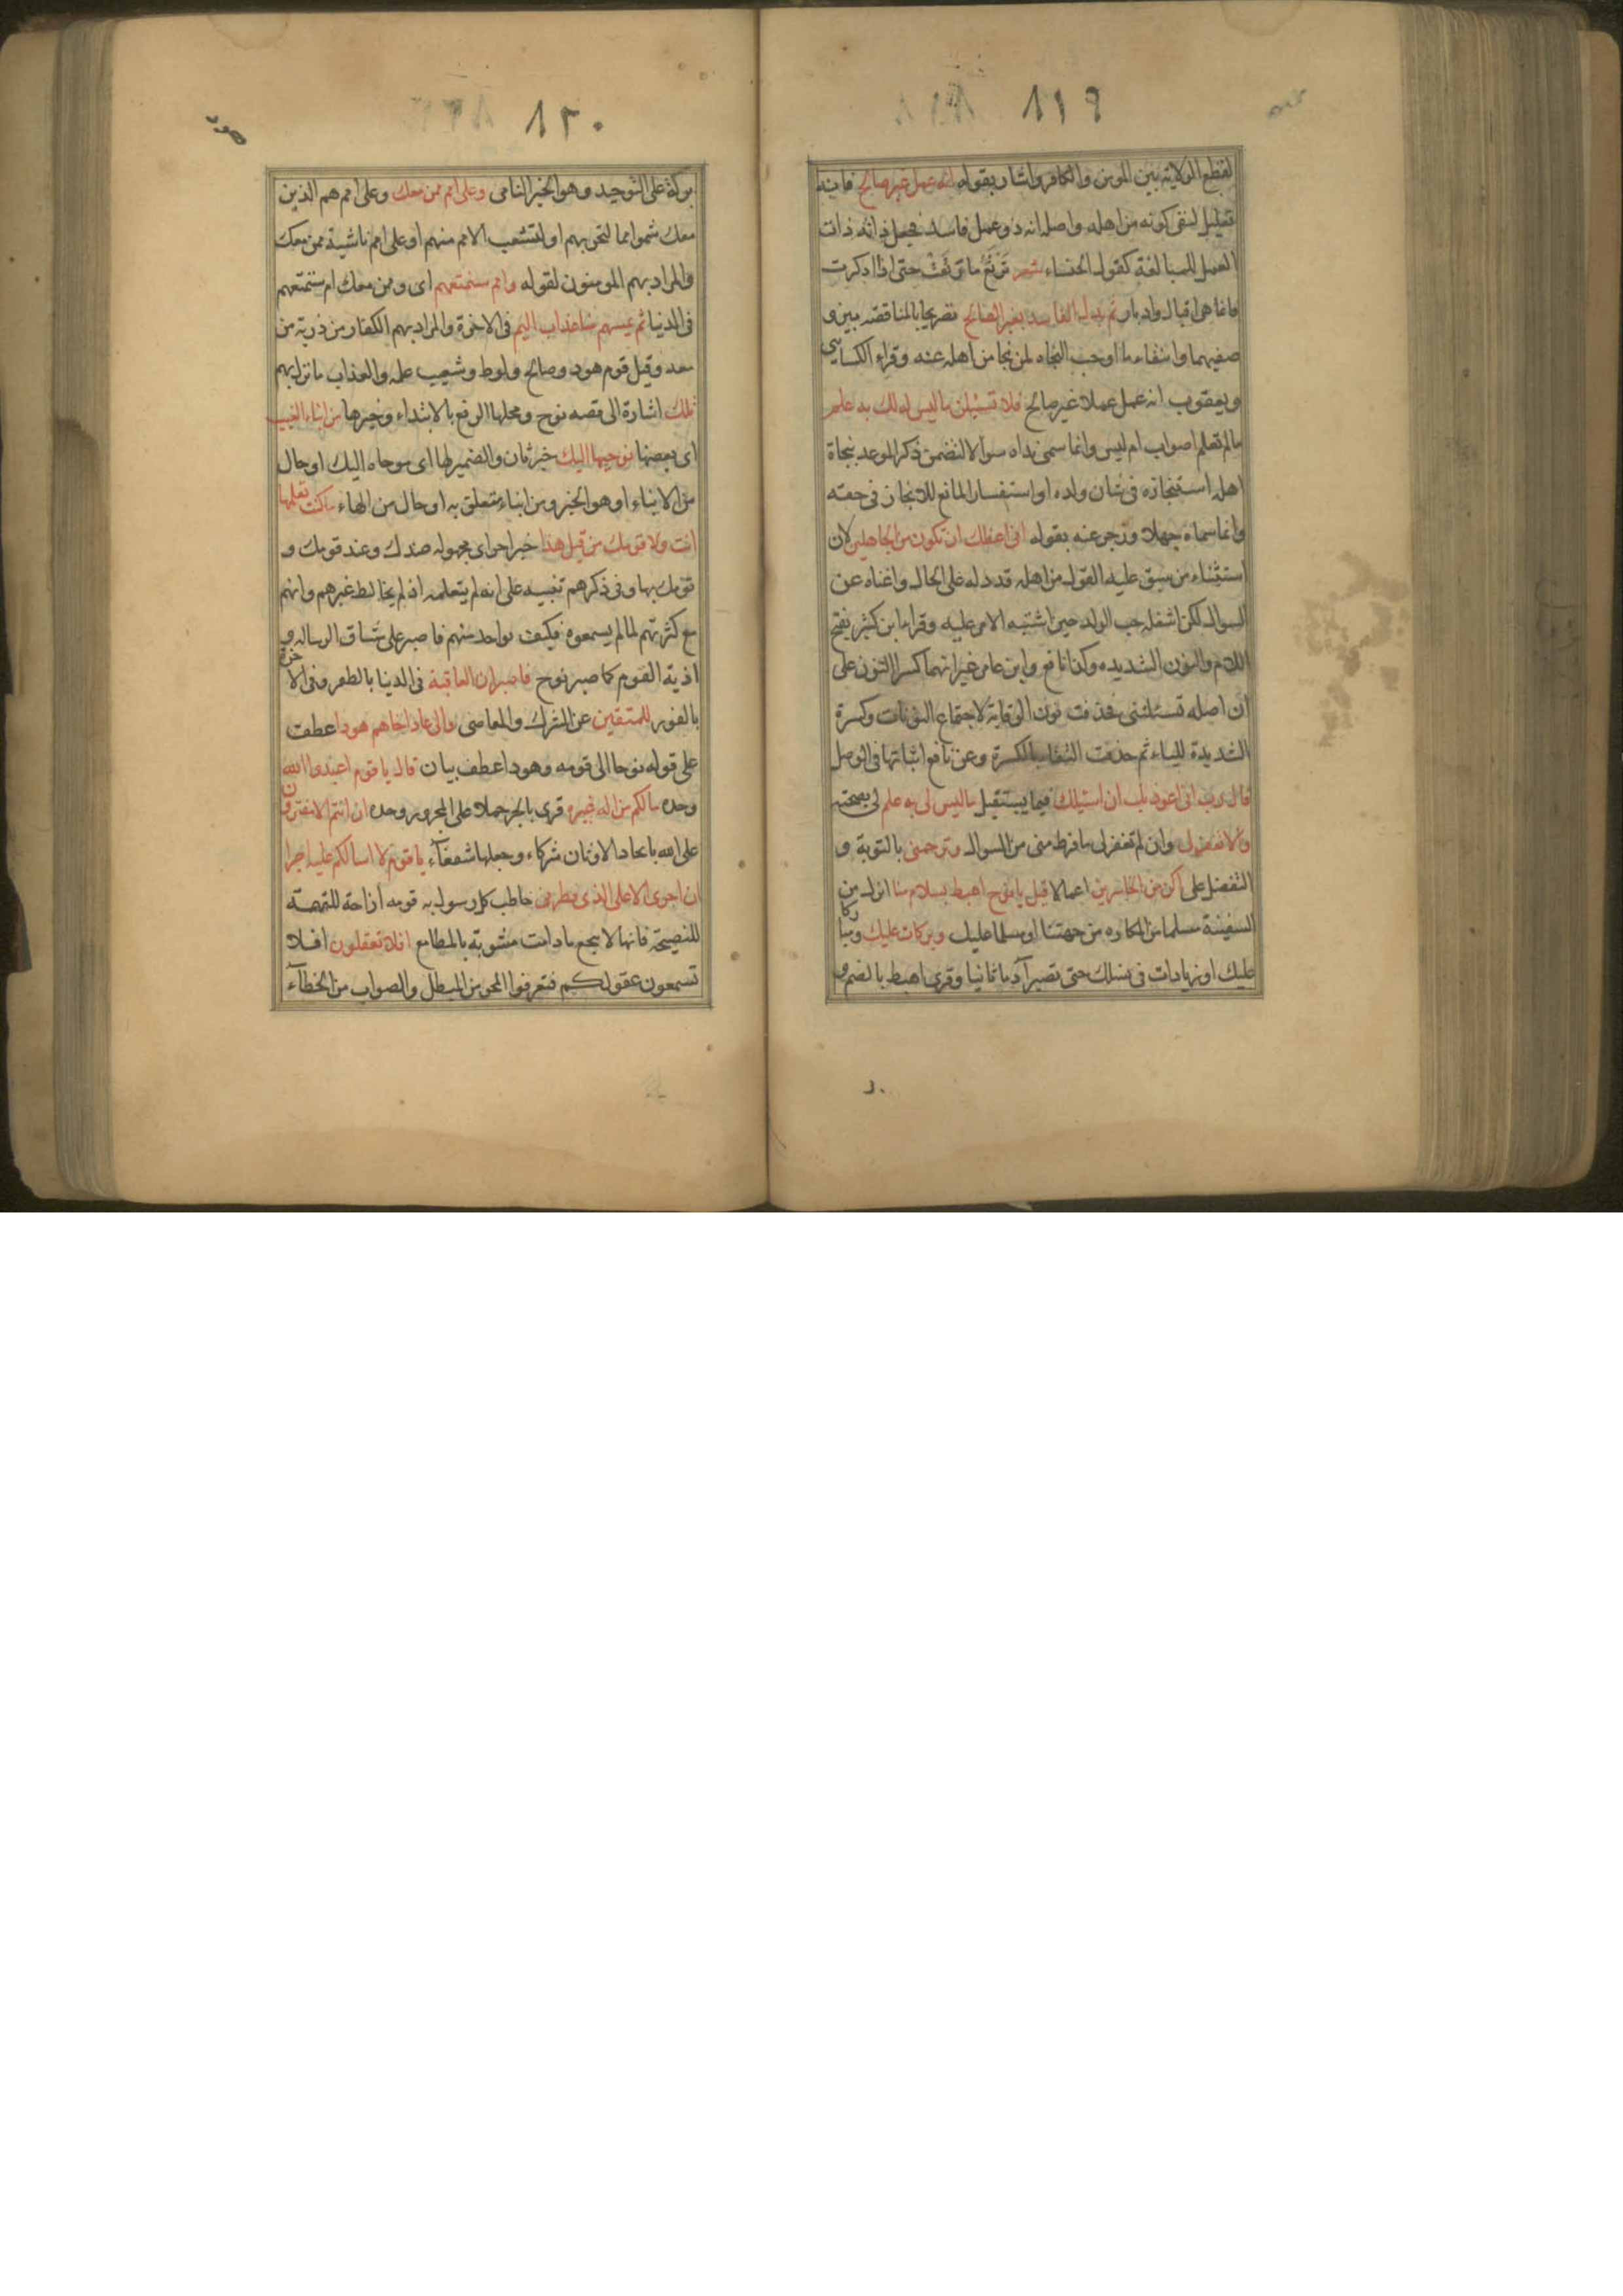 ٨١٩
لقطع الولاية بين المومن والكافر واشار بقوله انه عمل غير صالح فانه
تعليل لنفى كونه من اهله واصله انه ذو عمل فاسد فجعل ذاته ذات
العمل للمبالغة كقول الخنساء شعر ترتع ما رتعت حتى اذا ادكرت
فانما هى اقبال وادبار ثم بدل الفاسد بغير الصالح تصريحا بالمناقضه بين و
صفيهما وانتفاء ما اوجب النجاه لمن نجا من اهله عنه وقراء الكسايي
ويعقوب انه عمل عملا غير صالح فلا تسئلن ما ليس لك به علم
ما لم تعلم اصواب ام ليس وانما سمى نداه سوالا لتضمن ذكر الموعد بنجاة
اهله استنجازه فى شان ولده او استفسار المانع للانجاز فى حقه
وانما سماه جهلا وزجر عنه بقوله انى اعظك ان تكون من الجاهلين لان
استثناء من سبق عليه القول من اهله قد دله على الحال واغناه عن
السوال لكن اشغله حب الولد حين اشتبه الامر عليه وقرا ابن كثير بفتح
اللام والنون الشديده وكذا نافع وابن عامر غير انهما كسرا النون على
ان اصله تسئلننى فحذفت نون الوقاية لاجتماع النونات وكسرة
الشديدة للياء ثم حذفت اكتفاء بالكسرة وعن نافع اثباتها فى الوصل
قال رب انى اعوذ بك ان اسئلك فيما يستقبل ما ليس لى به علم لى بصحته
والا تغفر لى وان لم تغفر لى ما فرط منى من السوال وترحمنى بالتوبة و
التفضل على اكن من الخاسرين اعمالا قيل يا نوح اهبط بسلام منا انزل من
السفينة مسلما من المكاره من جهتنا او مسلما عليك وبركات عليك ومباركا
عليك او زيادات فى نسلك حتى تصير آدما ثانيا وقرى اهبط بالضم و
هود
٨٢٠
بركة على التوحيد وهو الخير النامى وعلى امم ممن معك وعلى امم هم الذين
معك سموا امما لتحزبهم او لتشعب الامم منهم او على امم ناشية ممن معك
والمراد بهم المومنون لقوله وامم سنمتعهم اى وممن معك امم سنمتعهم
فى الدنيا ثم يمسهم منا عذاب اليم فى الاخرة والمراد بهم الكفار من ذرية من
معه وقيل قوم هود وصالح ولوط وشعيب عله والعذاب ما نزل بهم
تلك اشارة الى قصه نوح ومحلها الرفع بالابتداء وخبرها من انباء الغيب
اى بعضها نوحيها اليك خبر ثان والضمير لها اى موحاه اليك او حال
من الانباء او هو الخبر ومن انباء متعلق به او حال من الهاء ما كنت تعلمها
انت ولا قومك من قبل هذا خبر اخر اى مجهوله عندك وعند قومك و
قومك بها وفى ذكرهم تنبيه على انه لم يتعلمه اذ لم يخالط غيرهم وانهم
مع كثرتهم لما لم يسمعوه فكيف بواحد منهم فاصبر على مشاق الرساله و
اذية القوم كما صبر نوح فاصبر ان العاقبة فى الدنيا بالظفر وفى الاخرة
بالفوز للمتقين عن الشرك والمعاصى والى عاد اخاهم هودا عطف
على قوله نوحا الى قومه وهودا عطف بيان قال يا قوم اعبدوا الله
وحده ما لكم من اله غيره قرى بالجر حملا على المجرور وحده ان انتم الا مفترون
على الله باتخاد الاوثان شركاء وجعلها شفعاآء يا قوم لا اسالكم عليه اجرا
ان اجرى الا على الذى فطرنى خاطب كل رسول به قومه ازاحة للتهمة
للنصيحة فانها لا ينجع ما دامت مشوبة بالمطامع افلا تعقلون افلا
تسمعون عقولكم فتعرفوا المحق من المبطل والصواب من الخطاآء